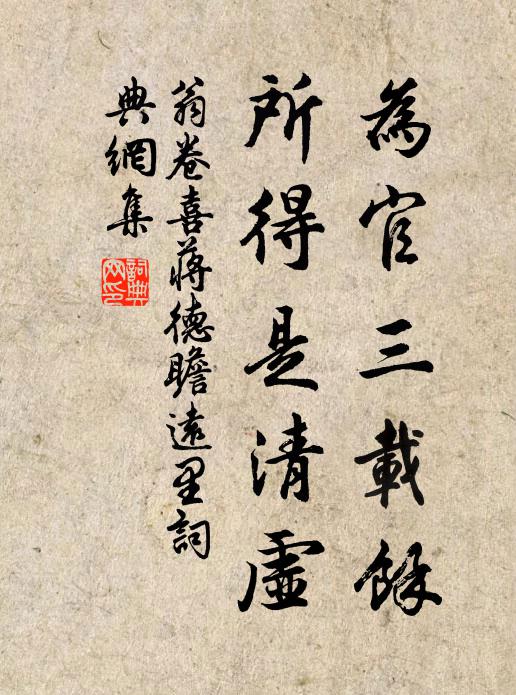 為官三載餘
所得是清虛
翁卷喜蔣德瞻遠里詞
典網集
詞典
网印